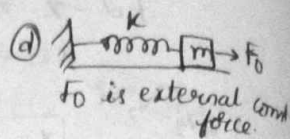 (d) K
m → F₀
F₀ is external const
force